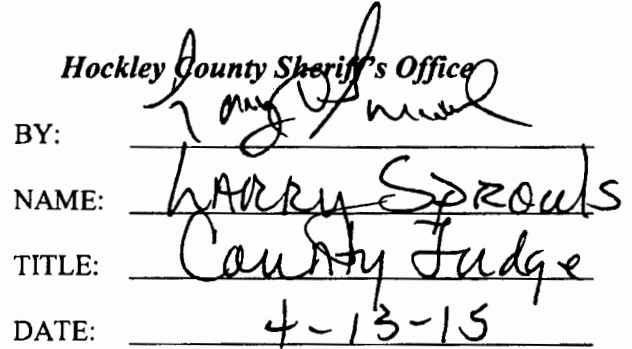 Hockley County Sheriff's Office
BY:
NAME: LARRY Sprowls
TITLE: County Judge
DATE: 4-13-15